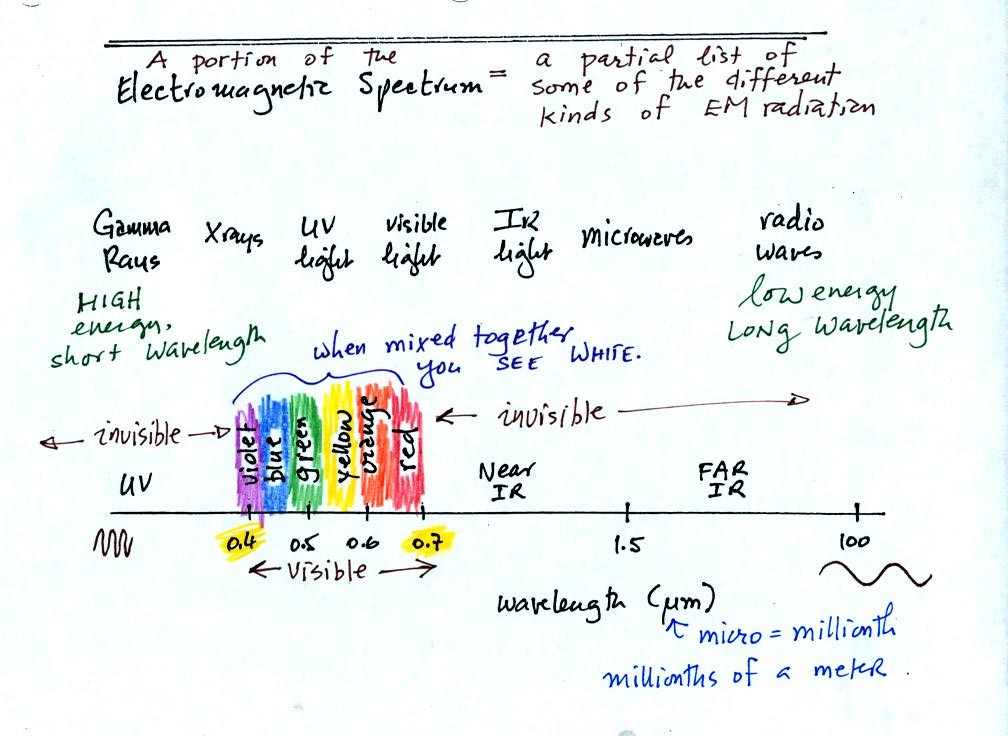 A portion of the
Electromagnetic Spectrum =
a partial list of
some of the different
kinds of EM radiation
Gamma
Rays
Xrays
UV
light
visible
light
IR
light
microwaves
radio
waves
HIGH
energy,
short wavelength
low energy
LONG wavelength
when mixed together
you SEE WHITE.
invisible
violet
blue
green
yellow
orange
red
invisible
UV
Near
IR
FAR
IR
0.4
0.5
0.6
0.7
1.5
100
visible
wavelength (μm)
micro = millionth
millionths of a meter.